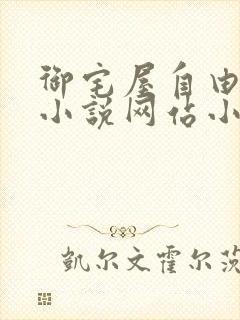 御宅屋自由
小说网佔小
凱尔文霍尔茨